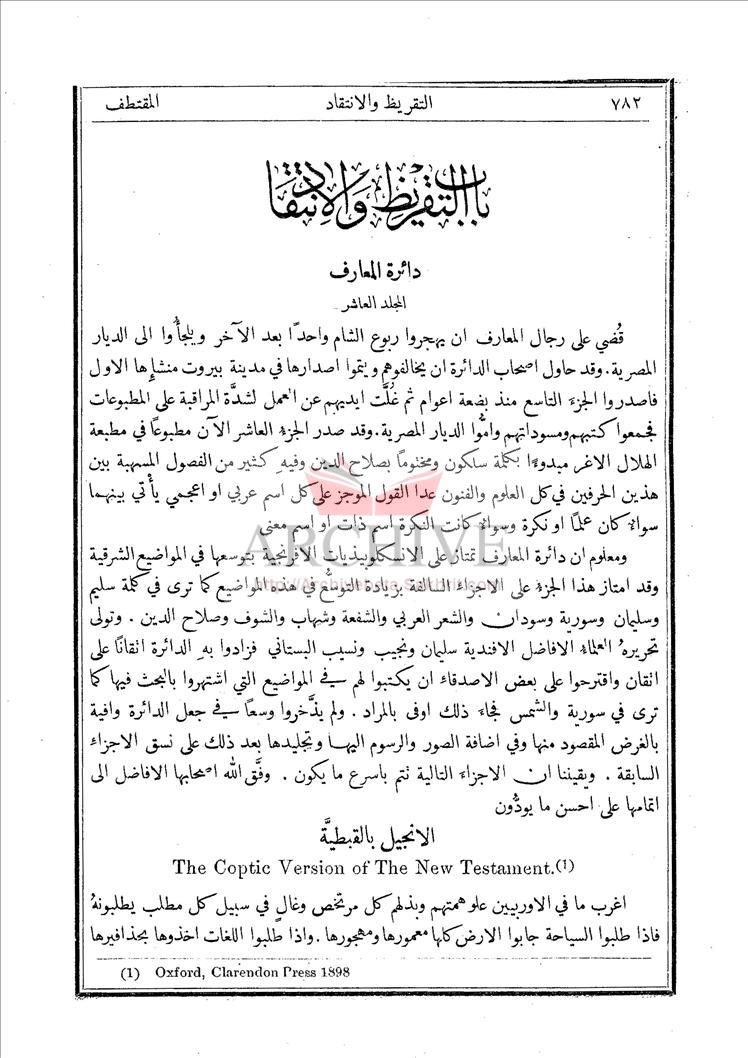 ٧٨٢ التقريظ والانتقاد المقتطف
باب التقريظ والانتقاد
دائرة المعارف
المجلد العاشر
قُضي على رجال المعارف ان يهجروا ربوع الشام واحدًا بعد الآخر ويلجأُوا الى الديار
المصرية. وقد حاول اصحاب الدائرة ان يخالفوهم ويتموا اصدارها في مدينة بيروت منشإِها الاول
فاصدروا الجزء التاسع منذ بضعة اعوام ثم غُلَّت ايديهم عن العمل لشدَّة المراقبة على المطبوعات
فجمعوا كتبهم ومسوداتهم وامُّوا الديار المصرية. وقد صدر الجزء العاشر الآن مطبوعًا في مطبعة
الهلال الاغر مبدوءًا بكلمة سلكون ومختومًا بصلاح الدين وفيهِ كثير من الفصول المسهبة بين
هذين الحرفين في كل العلوم والفنون عدا القول الموجز على كل اسم عربي او اعجمي يأتي بينهما
سواءٌ كان علمًا او نكرة وسواءٌ كانت النكرة اسم ذات او اسم معنى
ومعلوم ان دائرة المعارف تمتاز على الانسكلوبيذيات الافرنجية بتوسعها في المواضيع الشرقية
وقد امتاز هذا الجزء على الاجزاء السالفة بزيادة التوسُّع في هذه المواضيع كما ترى في كلمة سليم
وسليمان وسورية وسودان والشعر العربي والشفعة وشهاب والشوف وصلاح الدين . وتولى
تحريرهُ العلماء الافاضل الافندية سليمان ونجيب ونسيب البستاني فزادوا بهِ الدائرة اتقانًا على
اتقان واقترحوا على بعض الاصدقاء ان يكتبوا لهم في المواضيع التي اشتهروا بالبحث فيها كما
ترى في سورية والشمس فجاءَ ذلك اوفى بالمراد . ولم يذَّخروا وسعًا في جعل الدائرة وافية
بالغرض المقصود منها وفي اضافة الصور والرسوم اليها وتجليدها بعد ذلك على نسق الاجزاء
السابقة . ويقيننا ان الاجزاء التالية تتم باسرع ما يكون . وفَّق الله اصحابها الافاضل الى
اتمامها على احسن ما يودُّون
الانجيل بالقبطيَّة
The Coptic Version of The New Testament.(1)
اغرب ما في الاوربيين علو همتهم وبذلهم كل مرتخص وغالٍ في سبيل كل مطلب يطلبونهُ
فاذا طلبوا السياحة جابوا الارض كلها معمورها ومهجورها . واذا طلبوا اللغات اخذوها بحذافيرها
(1) Oxford, Clarendon Press 1898
ARCHIVE